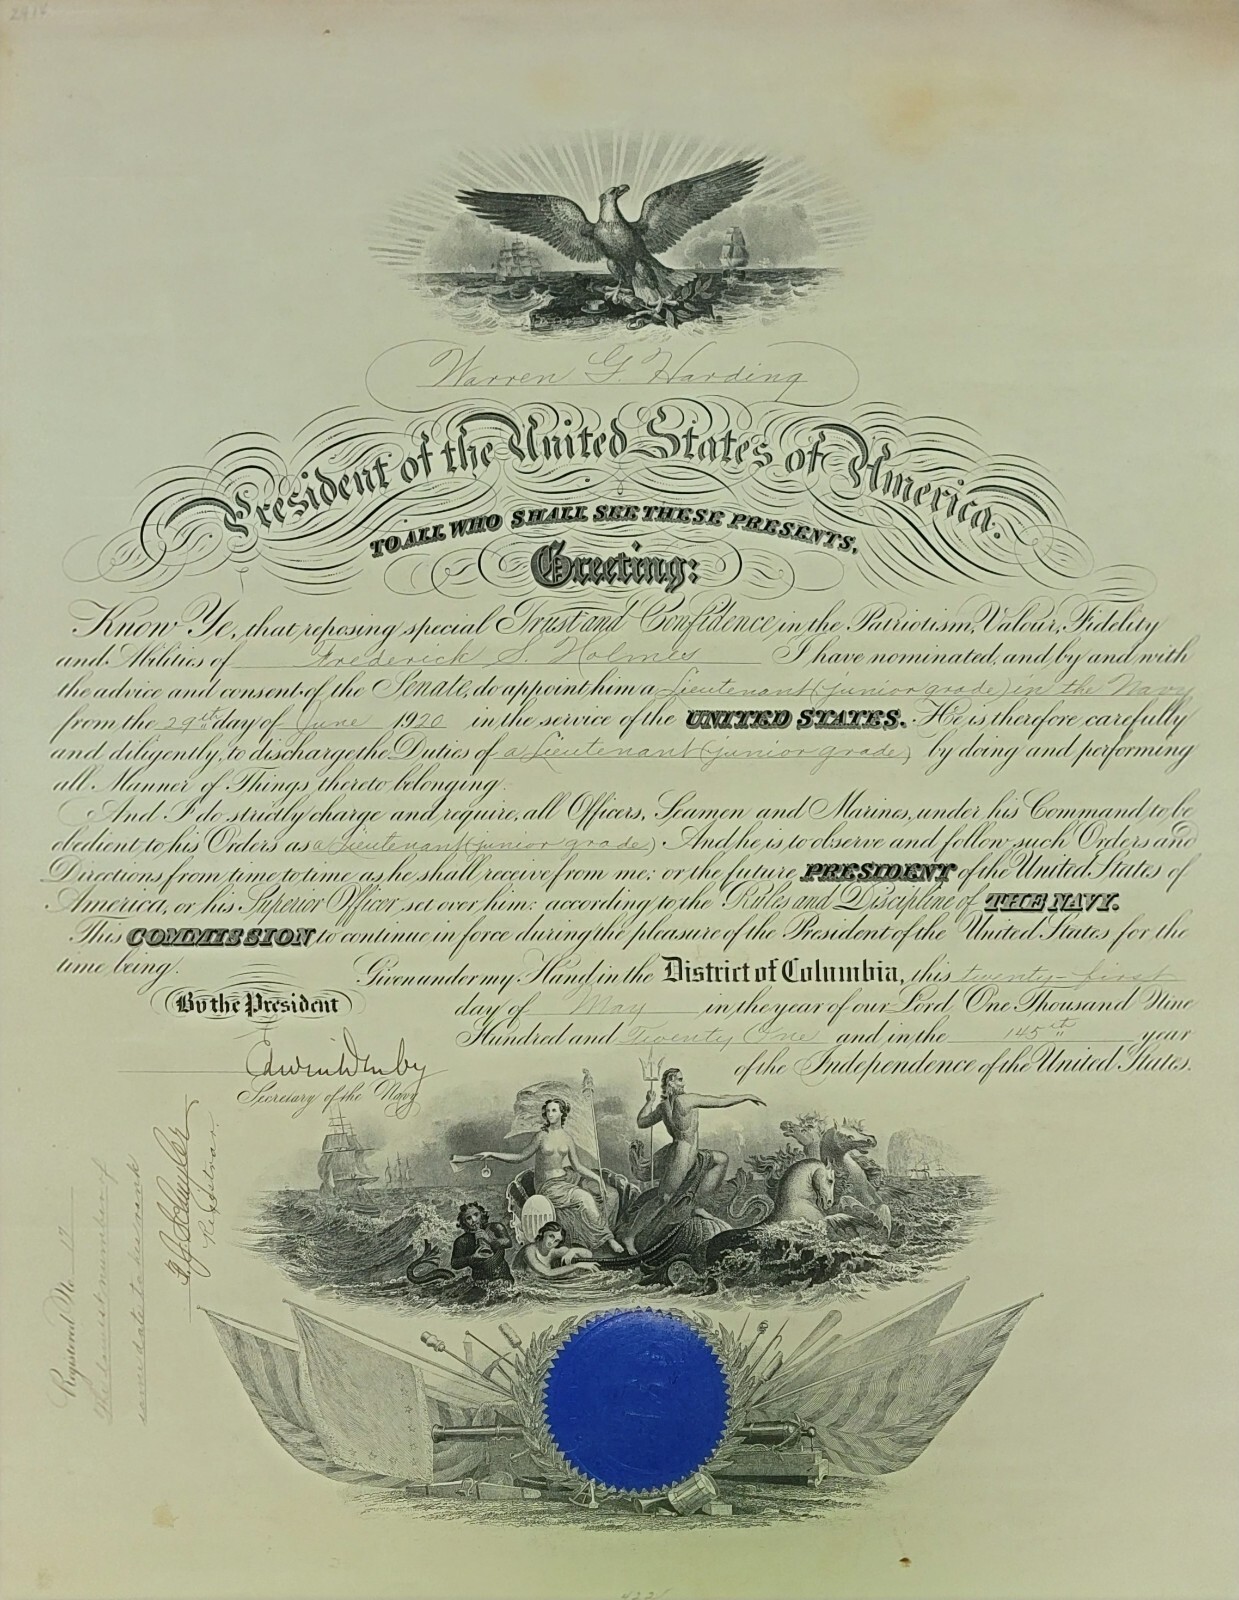 2414
Warren G. Harding
President of the United States of America.
TO ALL WHO SHALL SEE THESE PRESENTS,
Greeting:
Know Ye, that reposing special Trust and Confidence in the Patriotism, Valour, Fidelity
and Abilities of Frederick S. Holmes I have nominated, and by and with
the advice and consent of the Senate, do appoint him a Lieutenant (junior grade) in the Navy
from the 29th day of June 1920 in the service of the UNITED STATES. He is therefore carefully
and diligently, to discharge the Duties of a Lieutenant (junior grade) by doing and performing
all Manner of Things thereto belonging.
And I do strictly charge and require, all Officers, Seamen and Marines, under his Command, to be
obedient to his Orders as a Lieutenant (junior grade). And he is to observe and follow such Orders and
Directions from time to time as he shall receive from me; or the future PRESIDENT of the United States of
America, or his Superior Officer set over him: according to the Rules and Discipline of THE NAVY.
This COMMISSION to continue in force during the pleasure of the President of the United States for the
time being.
Given under my Hand, in the District of Columbia, this twenty-first
day of May in the year of our Lord, One Thousand Nine
Hundred and Twenty One and in the 145th year
of the Independence of the United States.
By the President
Edwin Denby
Secretary of the Navy
Registrar.
Registered No. 17
The lowest number of
same date to his rank